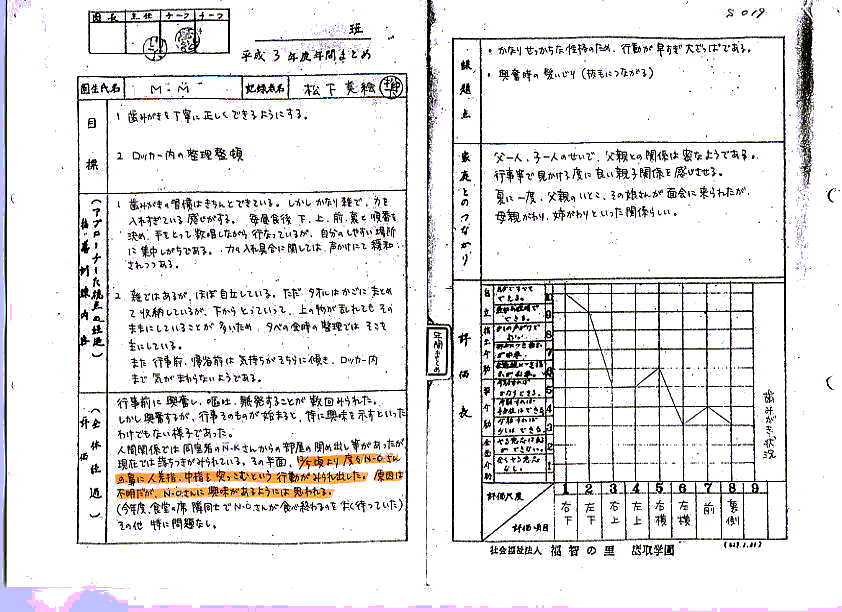 園長 主任 チーフ チーフ
班
平成 3 年度年間まとめ
園生氏名 M・M 記録者名 松下 英絵
目標
1 歯みがきを丁寧に正しくできるようにする。
2 ロッカー内の整理整頓
(アプローチした視点の経過)
指導訓練内容
1 歯みがきの習慣はきちんとできている。しかしかなり雑で、力を
入れすぎている感じがする。毎昼食後 下、上、前、裏と順番を
決め、手をとって数唱しながら行なっているが、自分のしやすい場所
に集中しがちである。力の入れ具合に関しては、声かけにて緩和
されつつある。
2 雑ではあるが、ほぼ自立している。ただタオルはかごにまとめ
て収納しているが、下からとっていって、上の物が乱れてもその
ままにしていることが多いため、夕べの会時の整理ではそこを
主にしている。
また行事前、帰省前は気持ちがそちらに傾き、ロッカー内
まで気がまわらないようである。
(全体経過)
評価
行事前に興奮し、嘔吐、熱発することが数回みられた。
しかし興奮するが、行事そのものが始まると、特に興味を示すといった
わけでもない様子であった。
人間関係では同室者のN・Kさんからの部屋の閉め出し等があったが
現在では落ちつきがみられている。その半面、頃より度々N・Oさん
の鼻に人差指、中指を突っこむという行動がみられ出した。原因は
不明だが、N・Oさんに興味があるようには思われる。
(今年度、食堂の席 隣同士でN・Oさんが食べ終わるのをよく待っていた)
その他 特に問題なし。
S 019
課題点
・かなりせっかちな性格のため、行動が早すぎ大ざっぱである。
・興奮時の髪いじり(抜毛につながる)
家庭とのつながり
父一人、子一人のせいで、父親との関係は密なようである。
行事等で見かける度に良い親子関係を感じさせる。
夏に一度、父親のいとこ、その娘さんが面会に来られたが、
母親がわり、姉がわりといった関係らしい。
年間まとめ
評価表
自立
介助
10
9
8
7
6
5
4
3
2
1
歯みがき状況
評価尺度
評価項目
1 2 3 4 5 6 7 8 9
右下 左下 右上 左上 右横 左横 前 裏側
社会福祉法人 福智の里 鷹取学園